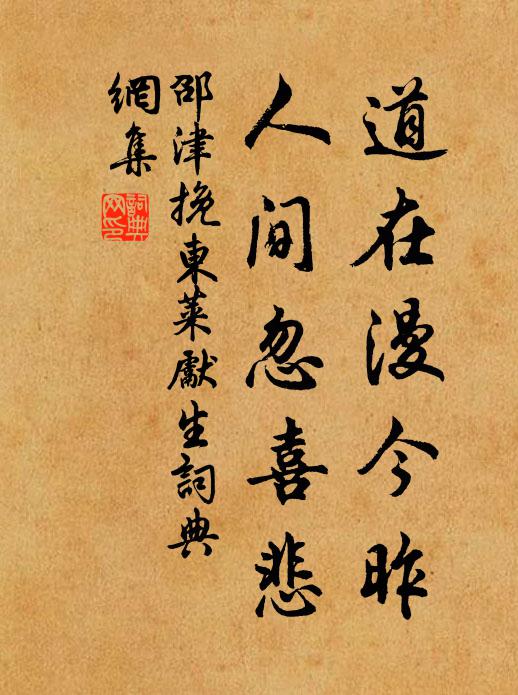 道在漫今昨
人间忽喜悲
邵津挽東萊獻生詞典
網集
詞典
网印